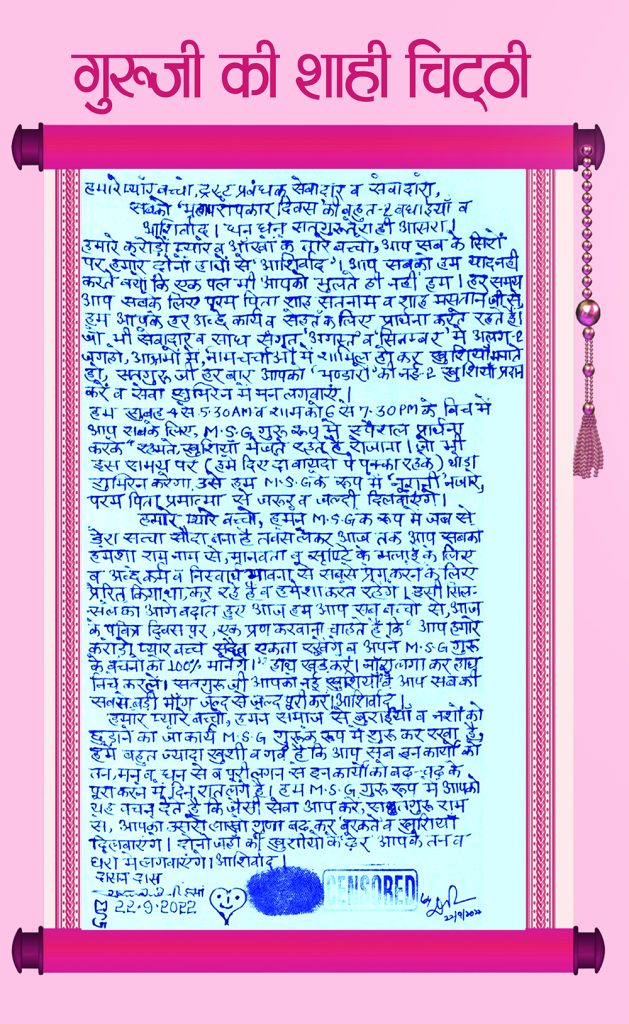 गुरूजी की शाही चिट्ठी
हमारे प्यारे बच्चो, ट्रस्ट प्रबंधक सेवादार व सेवादारों,
सबको "महापरोपकार दिवस की बहुत-2 बधाईयाँ व
आशिर्वाद। धन धन सतगुरू तेरा ही आसरा।
हमारे करोड़ों प्यारे व आँखों के तारे बच्चो, आप सब के सिरों
पर हमारे दोनों हाथों से "आशिर्वाद"। आप सबको हम याद नहीं
करते क्यों कि एक पल भी आपको भुलते ही नहीं हम। हर समय
आप सबके लिए परम पिता शाह सतनाम व शाह मसतान जी से,
हम आपके हर अच्छे कार्य व सेहत के लिए प्रार्थना करते रहते हैं।
जो भी सेवादार व साध संगत "अगस्त" व "सितम्बर" में अलग-2
जगहों, आश्रमों में, नामचर्चाओं में शामिल हो कर खुशियाँ मनाते
हो, सतगुरू जी हर बार आपको "भण्डारों" की नई-2 खुशियाँ प्रदान
करें व सेवा सुमिरन में मन लगवाएं।
हम सुबह 4 से 5:30 AM व शाम को 6 से 7:30 PM के बिच में
आप सबके लिए, M.S.G गुरू रूप में स्पैशल प्रार्थना
करके "रहमतें, खुशियाँ भेजते रहते हैं रोजाना। जो भी
इस समय पर (हमें दिए दो वायदों पे पक्का रहके) थोड़ा
सुमिरन करेगा, उसे हम M.S.G के रूप में "नुरानी" नजारे,
परम पिता प्रमात्मा से जरूर व जल्दी दिलवाएंगे।
हमारे प्यारे बच्चो, हमने M.S.G के रूप में जब से
डेरा सच्चा सौदा बना है तबसे लेकर आज तक आप सबको
हमेशा राम नाम से, मानवता व सृष्टि के भलाई के लिए
व अच्छे कर्म व निस्वार्थ भावना से सबसे प्रेम करने के लिए
प्रेरित किया था, कर रहे हैं व हमेशा करते रहेंगे। इसी सिल-
सिले को आगे बढ़ाते हुए आज हम आप सब बच्चों से, आज
के पवित्र दिवस पर, एक प्रण करवाना चाहते हैं कि "आप हमारे
करोड़ों प्यारे बच्चे सदैव एकता रखेंगे व अपने M.S.G गुरू
के बचनों को 100% मानेंगे।" हाथ खड़े करें। नारा लगा कर हाथ
निचे करलें। सतगुरू जी आपको नई खुशियाँ व आप सबकी
सबसे बड़ी माँग जल्द से जल्द पूरी करें। आशिर्वाद।
हमारे प्यारे बच्चो, हमने समाज से बुराईयाँ व नशों को
छुड़ाने का जो कार्य M.S.G गुरू के रूप में शुरू कर रखा है,
हमें बहुत ज्यादा खुशी व गर्व है कि आप सब इन कार्यों को
तन, मन व धन से व पूरी लगन से इन कार्यों को बढ़-चढ़ के
पूरा करने में दिन रात लगे हैं। हम M.S.G गुरू रूप में आपको
यह वचन देते हैं कि जैसी सेवा आप करें, सतगुरू राम
से, आपको उससे लाखों गुणा बढ़ कर बरकतें व खुशियाँ
दिलवाएंगे। दोनों जहाँ की खुशीयों के ढेर आपके तन व
घरों में लगवाएंगे। आशिर्वाद।
दासन दास
MSG 22.9.2022
CENSORED
22/9/2022